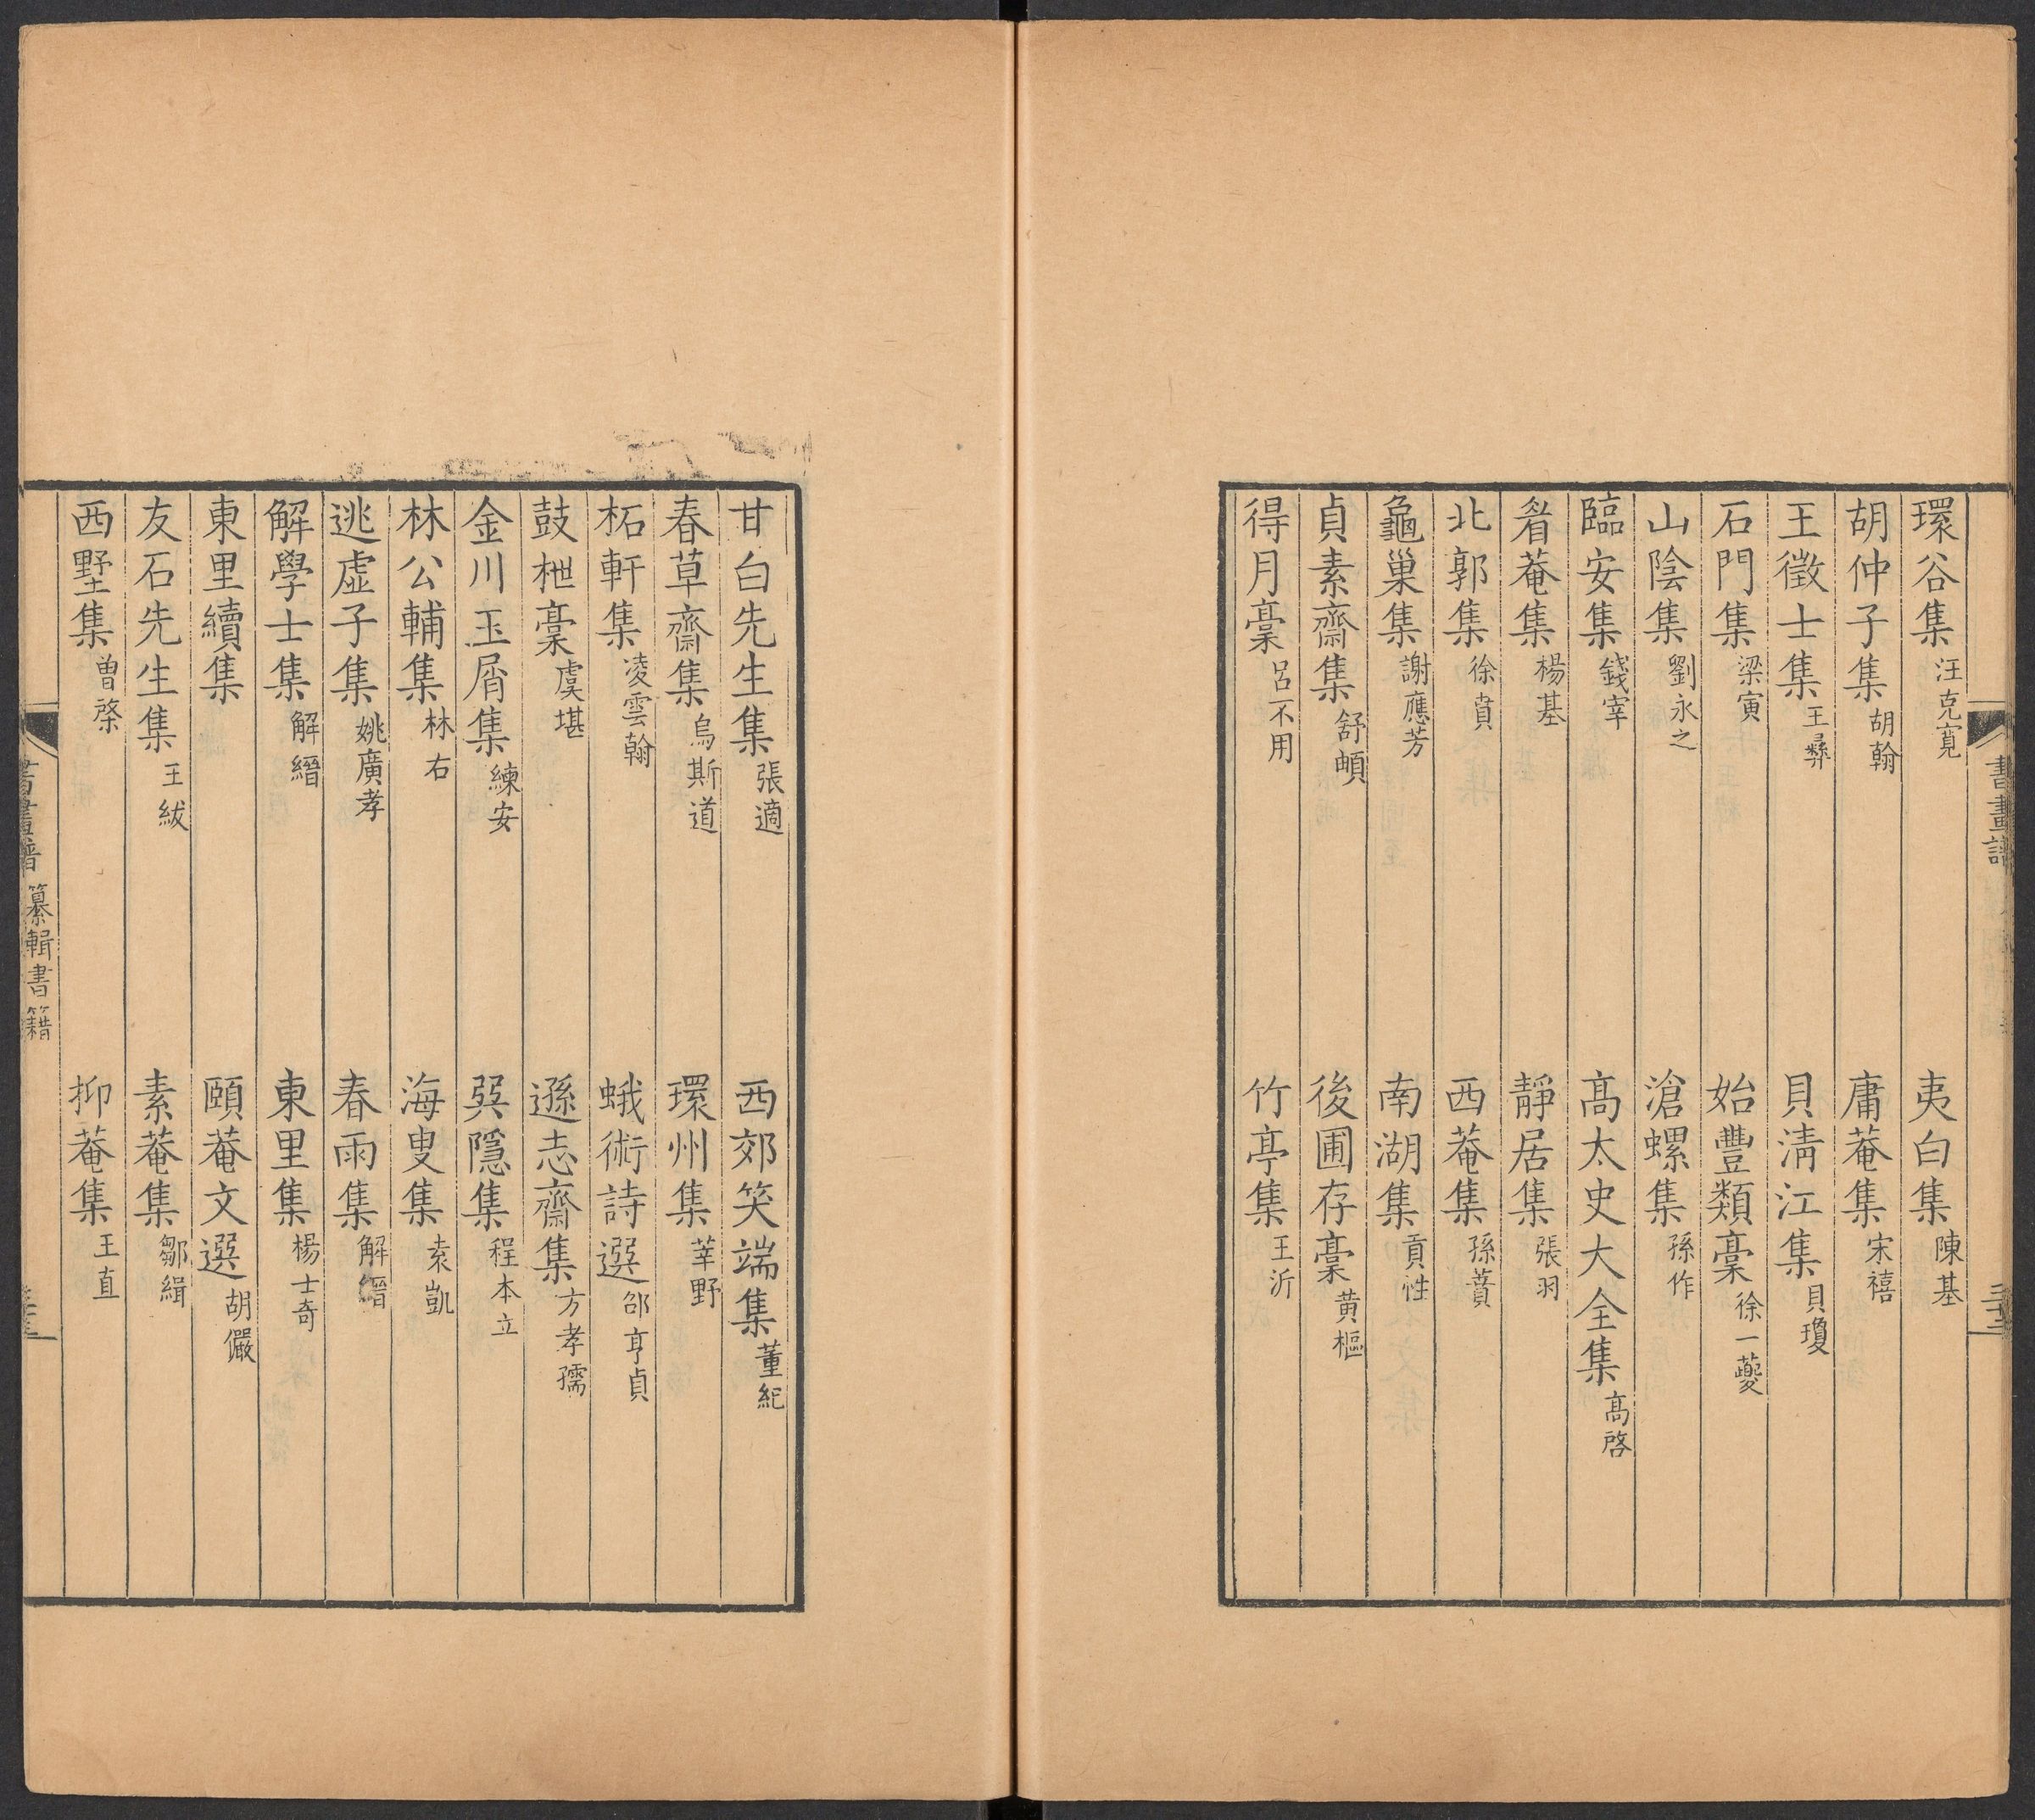 環谷集 汪克寬 夷白集 陳基
胡仲子集 胡翰 庸菴集 宋禧
王徵士集 王彝 貝清江集 貝瓊
石門集 梁寅 始豐類稾 徐一夔
山陰集 劉永之 滄螺集 孫作
臨安集 錢宰 高太史大全集 高啓
眉菴集 楊基 靜居集 張羽
北郭集 徐賁 西菴集 孫蕡
龜巢集 謝應芳 南湖集 貢性
貞素齋集 舒頔 後圃存稾 黃樞
得月稾 呂不用 竹亭集 王沂
書畫譜
甘白先生集 張適 西郊笑端集 董紀
春草齋集 烏斯道 環州集 莘野
柘軒集 凌雲翰 蛾術詩選 邵亨貞
鼓枻稾 虞堪 遜志齋集 方孝孺
金川玉屑集 練安 巽隱集 程本立
林公輔集 林右 海叟集 袁凱
逃虛子集 姚廣孝 春雨集 解縉
解學士集 解縉 東里集 楊士奇
東里續集 頤菴文選 胡儼
友石先生集 王紱 素菴集 鄒緝
西墅集 曾棨 抑菴集 王直
書畫譜 纂輯書籍